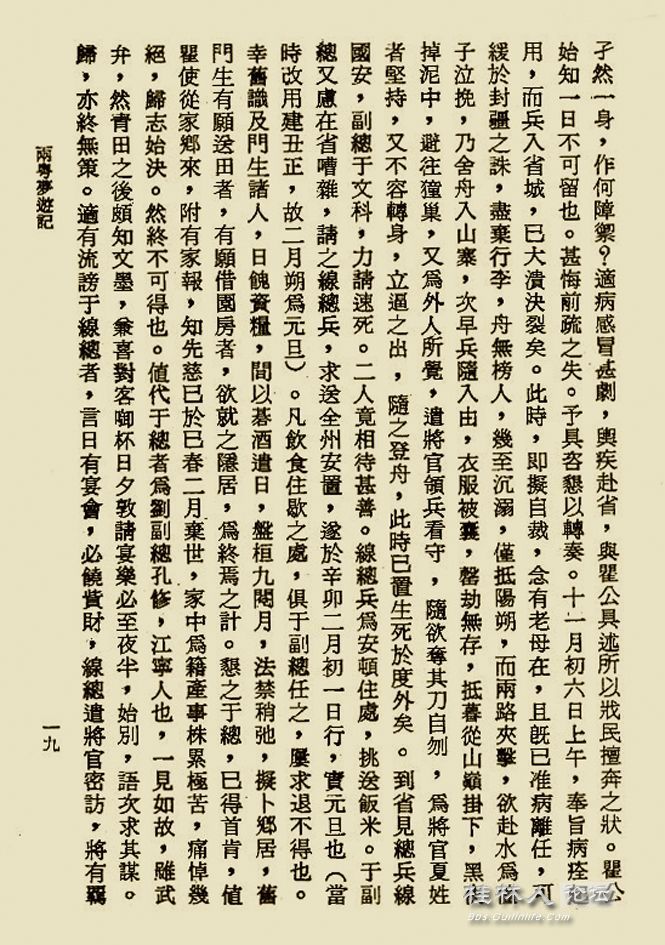 孑然一身,作何障禦?適病感冒甚劇,輿疾赴省,與瞿公具述所以戕民擅奔之狀。瞿公
始知一日不可留也。甚悔前疏之失。予具咨懇以轉奏。十一月初六日上午,奉旨病痊
用,而兵入省城,已大潰決裂矣。此時,即擬自裁,念有老母在,且旣已准病離任,可
緩於封疆之誅,盡棄行李,舟無榜人,幾至沉溺,僅抵陽朔,而兩路夾擊,欲赴水爲
子泣挽,乃舍舟入山寨,次早兵隨入由,衣服被囊,罄劫無存,抵暮從山巔掛下,黑
掉泥中,避往獞巢,又爲外人所覺,遣將官領兵看守,隨欲奪其刀自刎,爲將官夏姓
者堅持,又不容轉身,立逼之出,隨之登舟,此時已置生死於度外矣。到省見總兵線
國安,副總于文科,力請速死。二人竟相待甚善。線總兵爲安頓住處,挑送飯米。于副
總又慮在省嘈雜,請之線總兵,求送全州安置,遂於辛卯二月初一日行,實元旦也(當
時改用建丑正,故二月朔爲元旦)。凡飲食住歇之處,俱于副總任之,屢求退不得也。
幸舊識及門生諸人,日餽資糧,間以碁酒遣日,盤桓九閱月,法禁稍弛,擬卜鄉居,舊
門生有願送田者,有願借園房者,欲就之隱居,爲終焉之計。懇之于總,已得首肯,值
瞿使從家鄉來,附有家報,知先慈已於已春二月棄世,家中爲籍產事株累極苦,痛悼幾
絕,歸志始決。然終不可得也。値代于總者爲劉副總孔修,江寧人也,一見如故,雖武
弁,然青田之後頗知文墨,兼喜對客啣杯日夕敦請宴樂必至夜半,始別,語次求其謀。
歸,亦終無策。適有流謗于線總者,言日有宴會,必饒貲財,線總遣將官密訪,將有羈
兩粵夢遊記
一九
桂林人论坛
Bbs.Guilinlife.Com